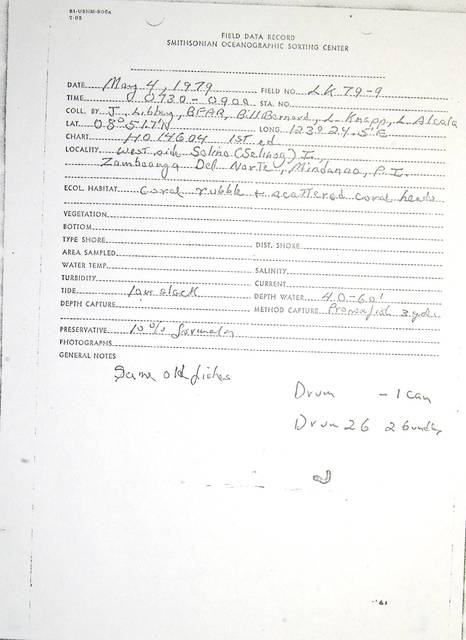 SI-USNM-506A
7-23
FIELD DATA RECORD
SMITHSONIAN OCEANOGRAPHIC SORTING CENTER
DATE May 4, 1979 FIELD NO. LK 79-9
TIME 0730-0900 STA. NO.
COLL. BY J. Libbey, BFAR, Bill Bernard, L. Knapp, L. Alcala
LAT. 08° 51.7'N LONG. 123° 24.5'E
CHART HO 14604 1st ed
LOCALITY West side Solino (Selinog) I.
Zamboanga Del Norte, Mindanao, P.I.
ECOL. HABITAT Coral rubble + scattered coral heads
VEGETATION
BOTTOM
TYPE SHORE DIST. SHORE
AREA SAMPLED
WATER TEMP. SALINITY
TURBIDITY CURRENT
TIDE low slack DEPTH WATER 40-60'
DEPTH CAPTURE METHOD CAPTURE Pronoxfish 3 gals.
PRESERVATIVE 10% formalin
PHOTOGRAPHS
GENERAL NOTES
Same old fishes
Drum - 1 can
Drum 26 2 bundles